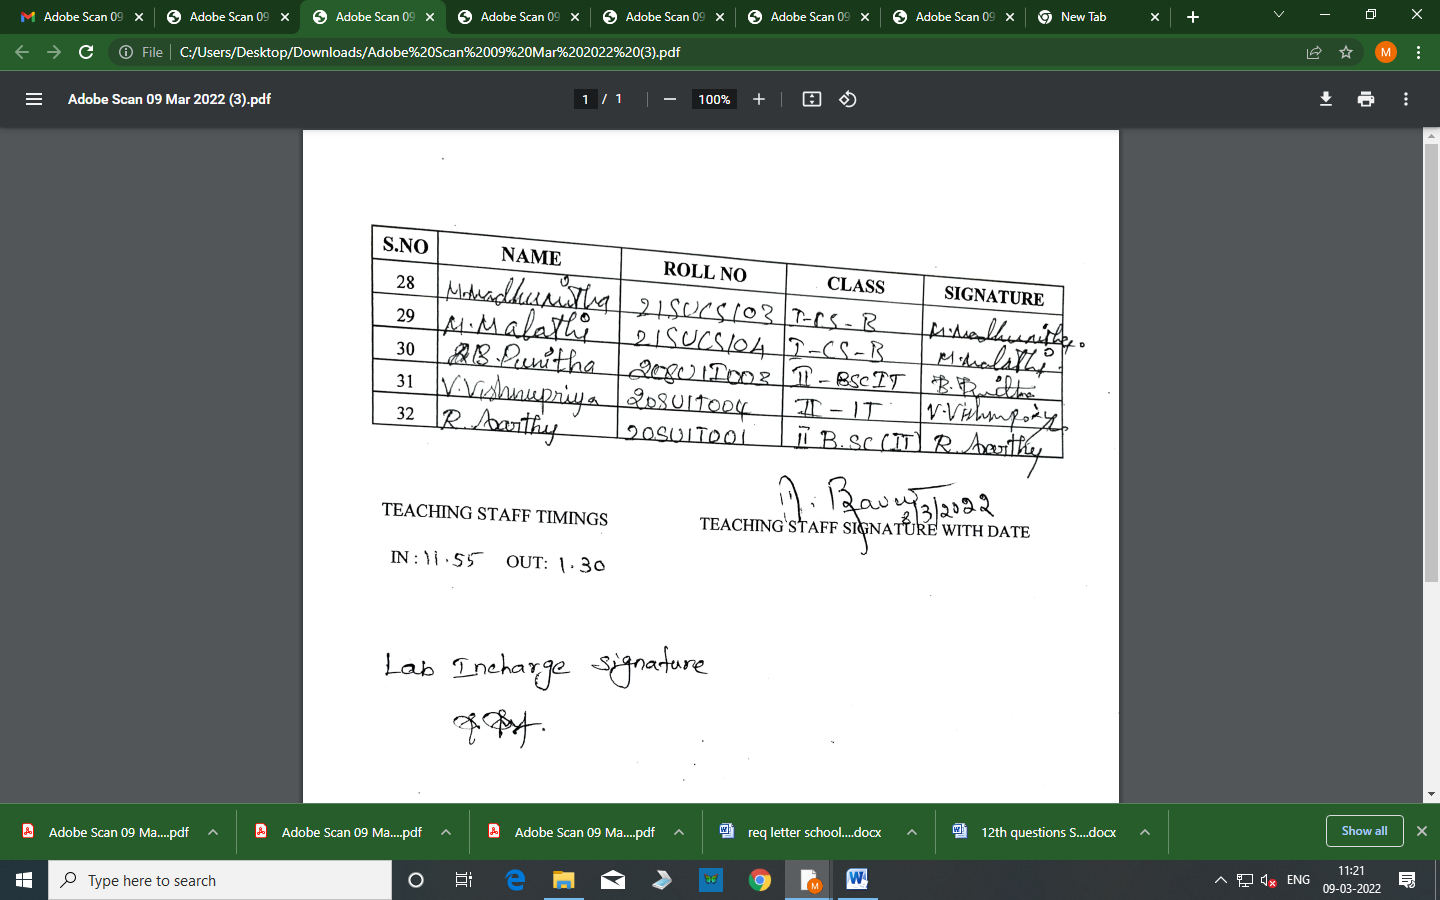 Adobe Scan 09 Adobe Scan 09 Adobe Scan 09 Adobe Scan 09 Adobe Scan 09 Adobe Scan 09 Adobe Scan 09 New Tab
File C:/Users/Desktop/Downloads/Adobe%20Scan%2009%20Mar%202022%20(3).pdf M
Adobe Scan 09 Mar 2022 (3).pdf 1 / 1 100%
S.NO NAME ROLL NO CLASS SIGNATURE
28 M.Madhunitha 21SUCS103 I-CS-B M.Madhunitha.
29 M.Malathi 21SUCS104 I-CS-B M.Malathi.
30 B.Punitha 20SUIT003 II-BSCIT B.Punitha
31 V.Vishnupriya 20SUIT004 II-IT V.Vishnupriya
32 R.Aarthy 20SUIT001 II B.SC(IT) R.Aarthy
/3/2022
TEACHING STAFF TIMINGS TEACHING STAFF SIGNATURE WITH DATE
IN : 11.55 OUT: 1.30
Lab Incharge Signature
Adobe Scan 09 Ma....pdf Adobe Scan 09 Ma....pdf Adobe Scan 09 Ma....pdf req letter school....docx 12th questions S....docx Show all
Type here to search ENG 11:21
09-03-2022